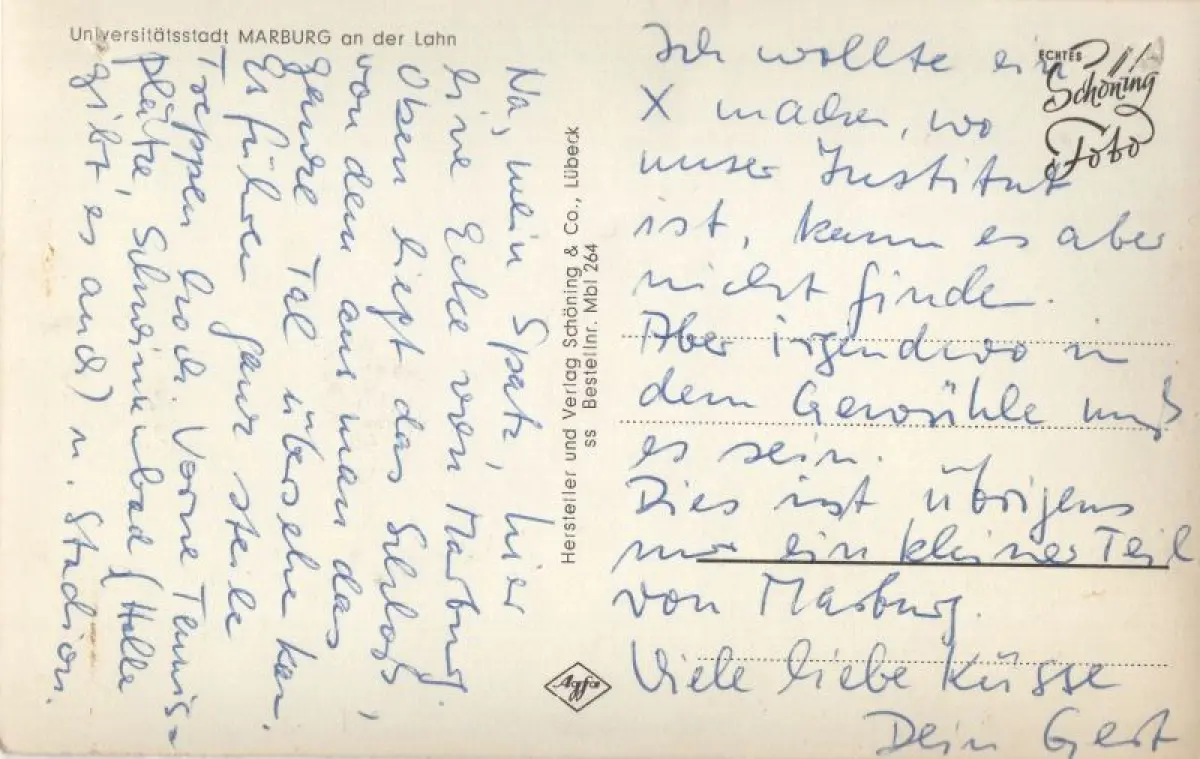 Universitätsstadt MARBURG an der Lahn
Na, mein Spatz, hier
eine Ecke von Marburg.
Oben liegt das Schloß,
von dem aus man das
ganze Tal übersehen kan.
Es führen ganz steile
Treppen hoch. Vorne Tennis-
plätze, Schwimmbad (Halle
gibt es auch) u. Stadion.
Hersteller und Verlag Schöning & Co., Lübeck
ss Bestellnr. Mbl 264
Agfa
ECHTES
Schöning
Foto
Ich wollte ein
X machen, wo
unser Institut
ist, kann es aber
nicht finden.
Aber irgendwo in
dem Gewühle muß
es sein.
Dies ist übrigens
nur ein kleiner Teil
von Marburg.
Viele liebe Küsse
Dein Gert